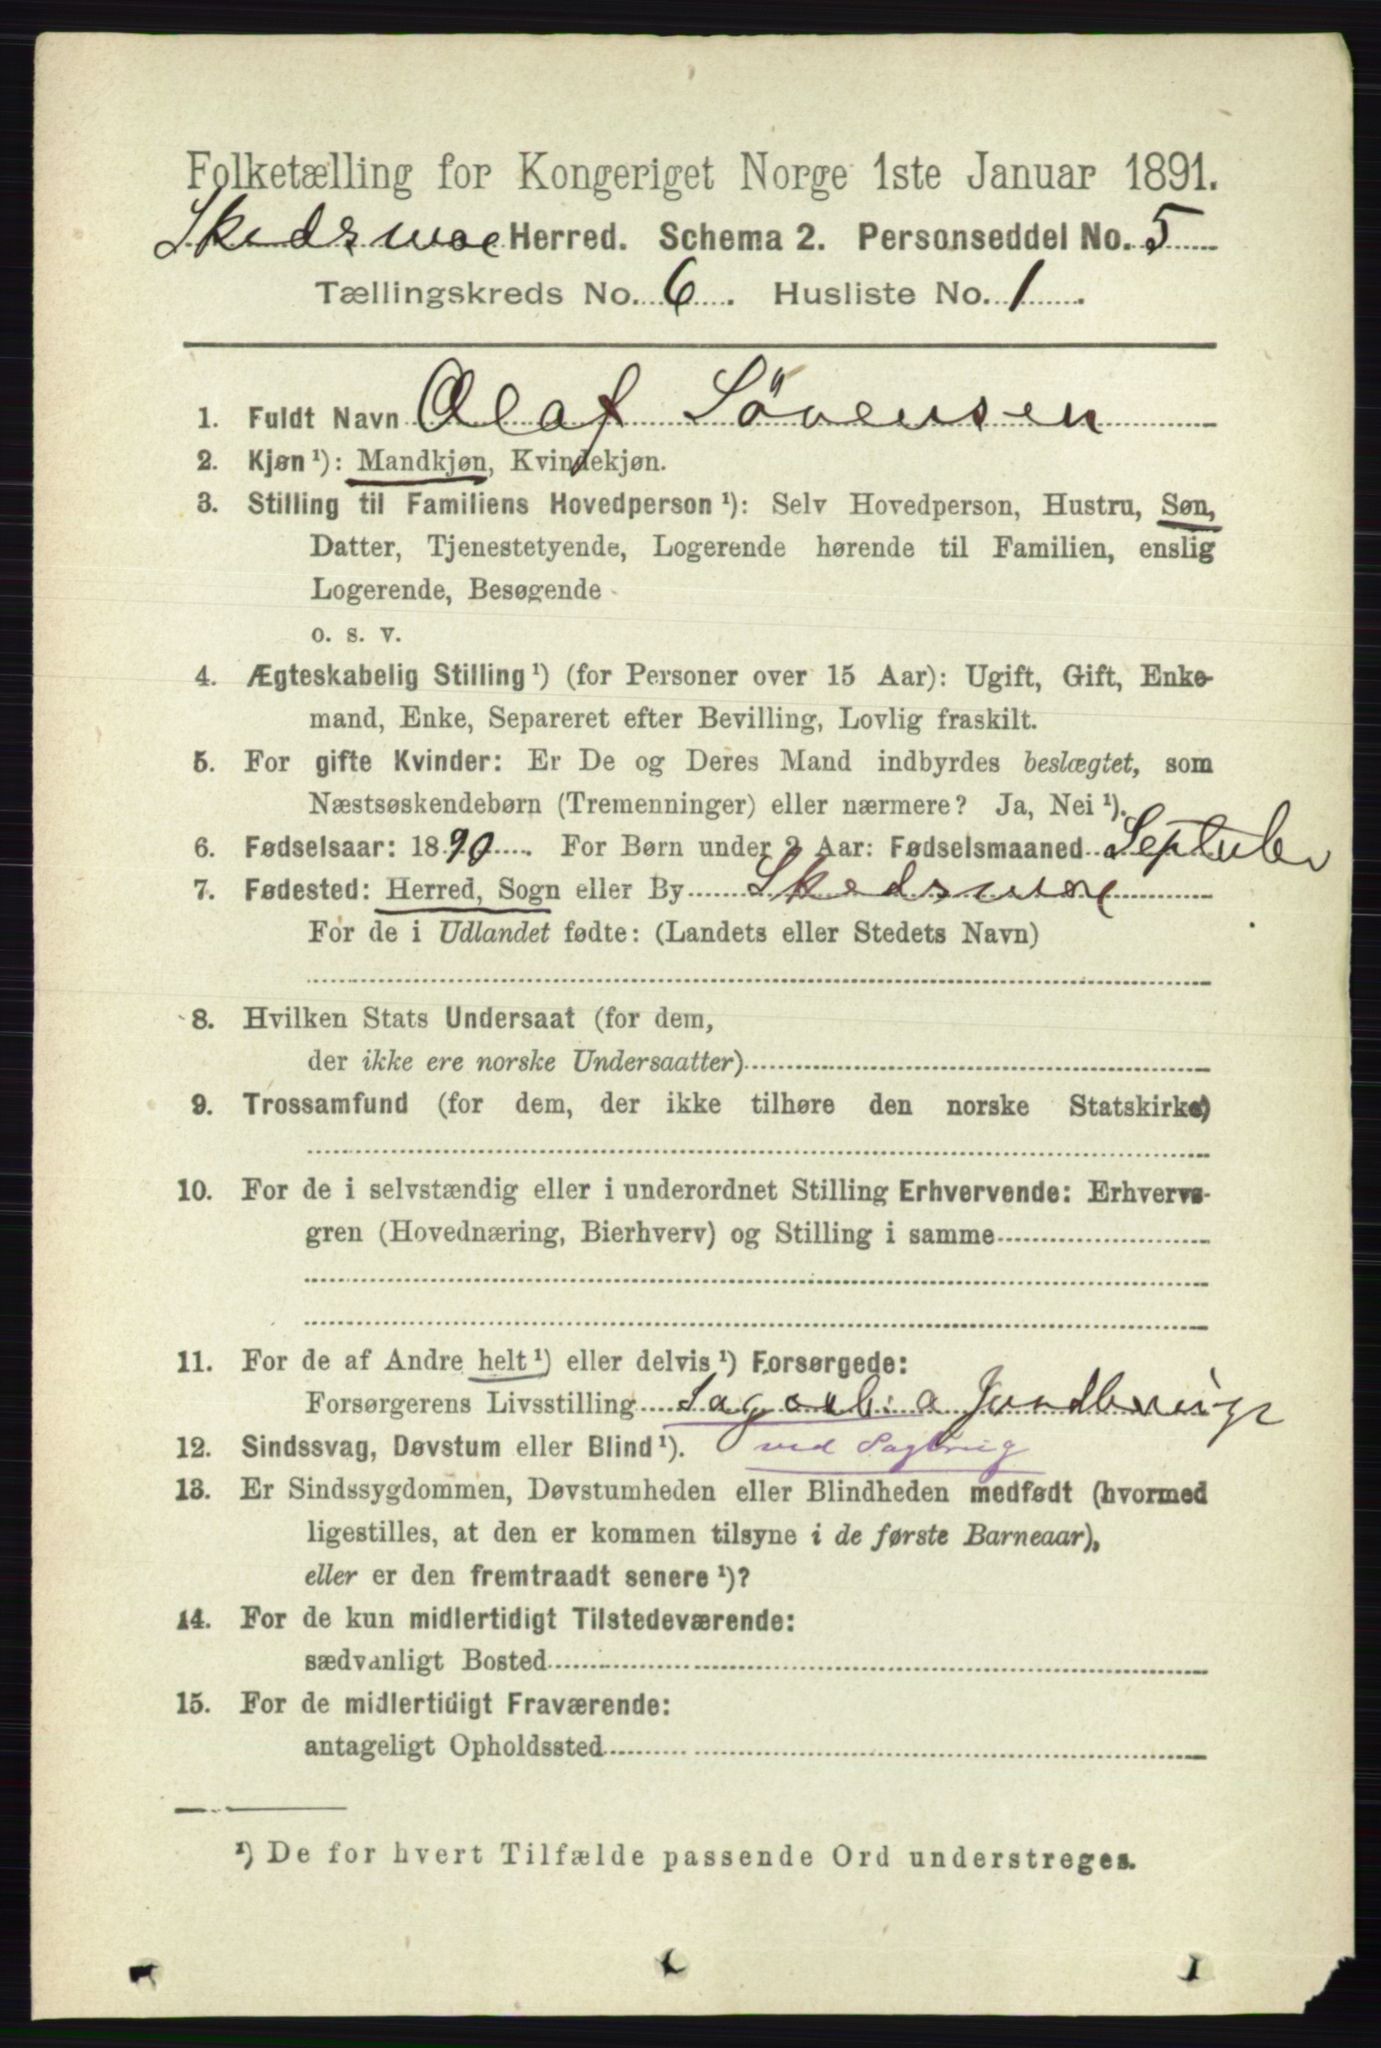 Folketælling for Kongeriget Norge 1ste Januar 1891.
Skedsmoe Herred. Schema 2. Personseddel No. 5
Tællingskreds No. 6. Husliste No. 1.
1. Fuldt Navn Olaf Sövensen
2. Kjøn ¹): Mandkjøn, Kvindekjøn.
3. Stilling til Familiens Hovedperson ¹): Selv Hovedperson, Hustru, Søn,
Datter, Tjenestetyende, Logerende hørende til Familien, enslig
Logerende, Besøgende
o. s. v.
4. Ægteskabelig Stilling ¹) (for Personer over 15 Aar): Ugift, Gift, Enke-
mand, Enke, Separeret efter Bevilling, Lovlig fraskilt.
5. For gifte Kvinder: Er De og Deres Mand indbyrdes beslægtet, som
Næstsøskendebørn (Tremenninger) eller nærmere? Ja, Nei ¹).
6. Fødselsaar: 1890. For Børn under 2 Aar: Fødselsmaaned
7. Fødested: Herred, Sogn eller By Skedsmoe
For de i Udlandet fødte: (Landets eller Stedets Navn)
8. Hvilken Stats Undersaat (for dem,
der ikke ere norske Undersaatter)
9. Trossamfund (for dem, der ikke tilhøre den norske Statskirke)
10. For de i selvstændig eller i underordnet Stilling Erhvervende: Erhvervs-
gren (Hovednæring, Bierhverv) og Stilling i samme
11. For de af Andre helt ¹) eller delvis ¹) Forsørgede:
Forsørgerens Livsstilling
12. Sindssvag, Døvstum eller Blind ¹). ved Sagbrug
13. Er Sindssygdommen, Døvstumheden eller Blindheden medfødt (hvormed
ligestilles, at den er kommen tilsyne i de første Barneaar),
eller er den fremtraadt senere ¹)?
14. For de kun midlertidigt Tilstedeværende:
sædvanligt Bosted
15. For de midlertidigt Fraværende:
antageligt Opholdssted
¹) De for hvert Tilfælde passende Ord understreges.